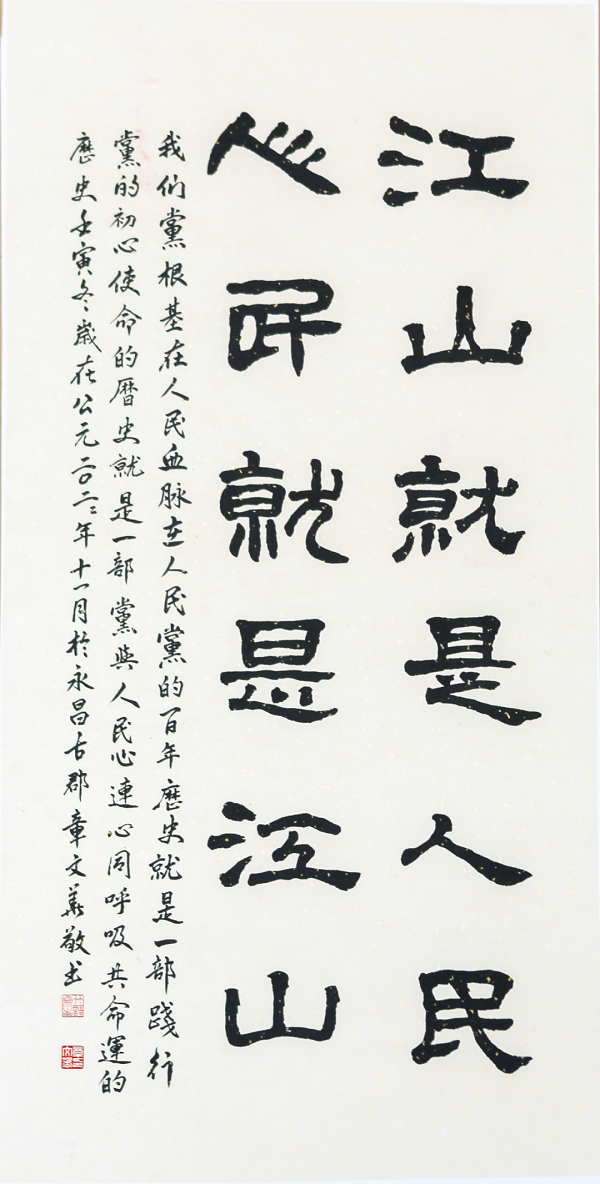 江山就是人民
人民就是江山
我们黨根基在人民血脉在人民黨的百年歷史就是一部踐行
黨的初心使命的曆史就是一部黨與人民心連心同呼吸共命運的
歷史壬寅冬歲在公元二〇二二年十一月於永昌古郡章文華敬书